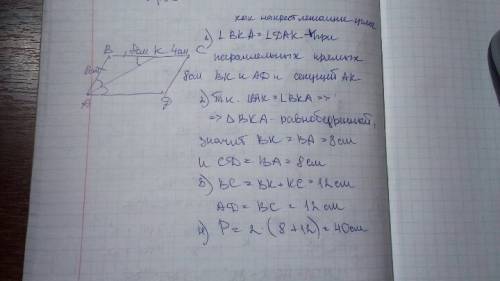 как накрест лежащие углы
1) ∠BKA = ∠DAK - при
параллельных прямых
BK и AD и секущей AK
2) Т.к. ∠BAK = ∠BKA =>
=> △BKA - равнобедренный,
значит BK = BA = 8 см
и CD = BA = 8 см
3) BC = BK + KC = 12 см
AD = BC = 12 см
4) P = 2 · (8 + 12) = 40 см
B 8см K 4см C
8см
8см
A D